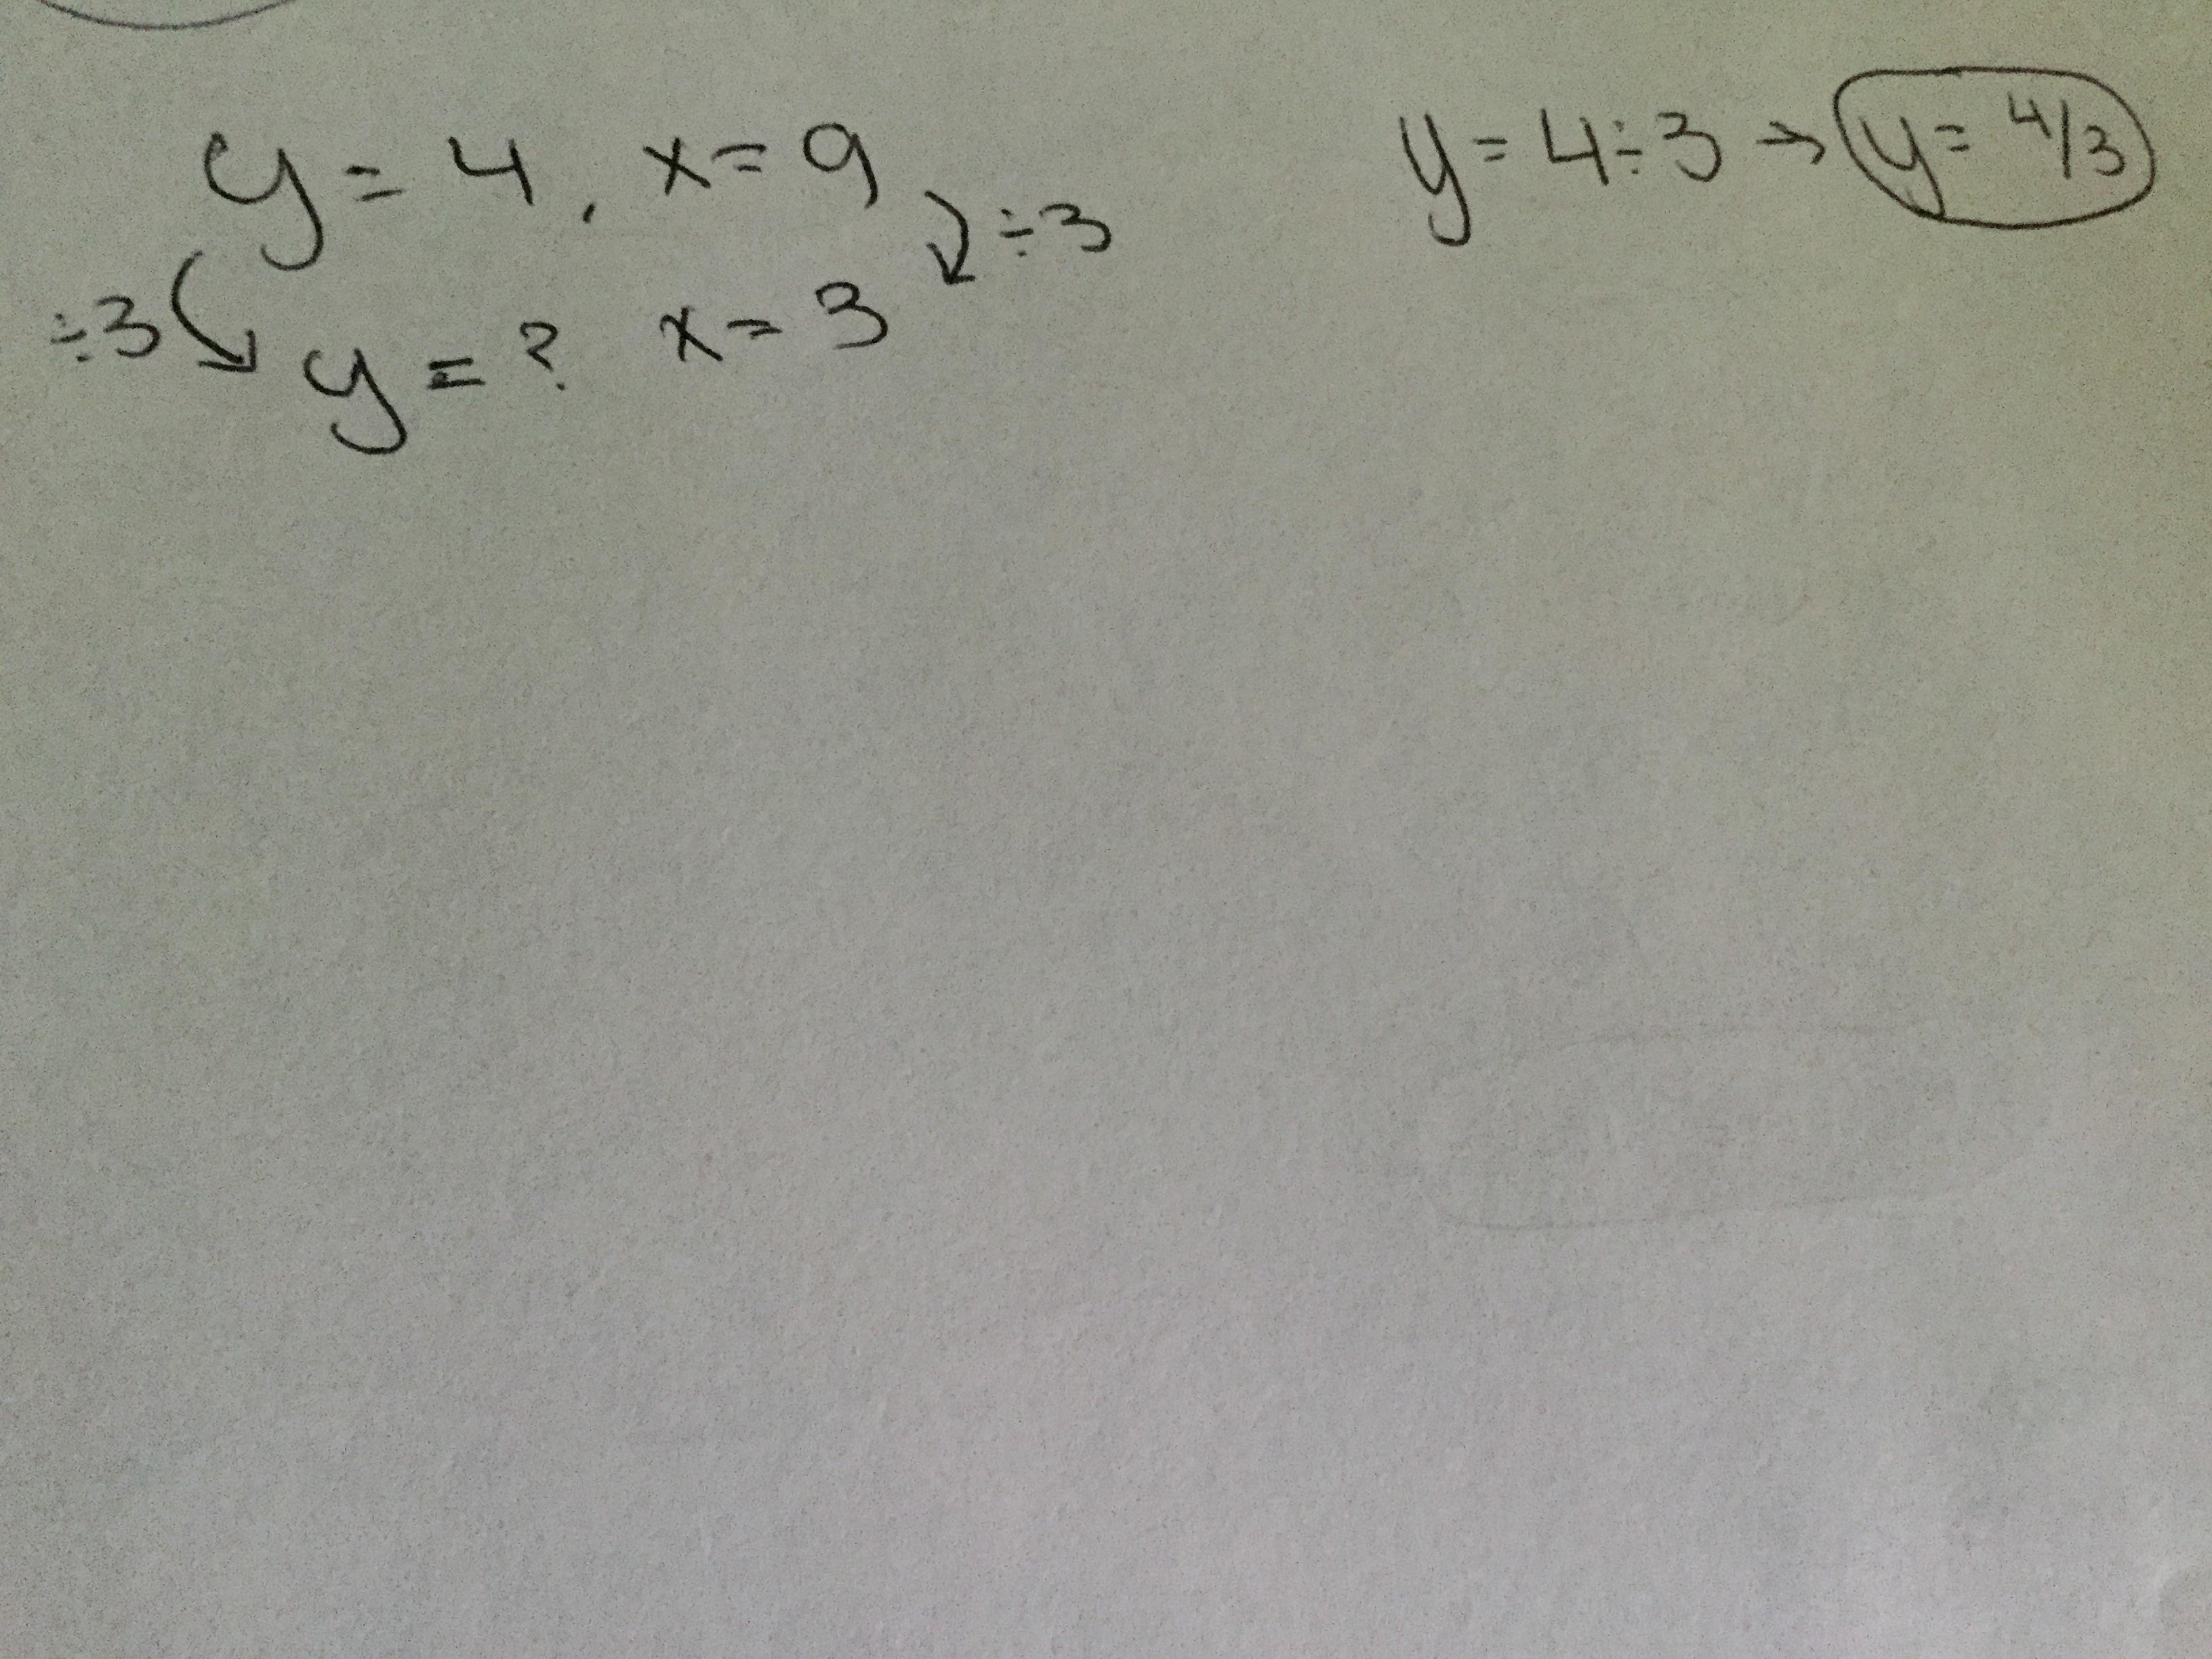 y = 4, x = 9
÷3
÷3
y = ? x = 3
y = 4÷3 → y = 4/3